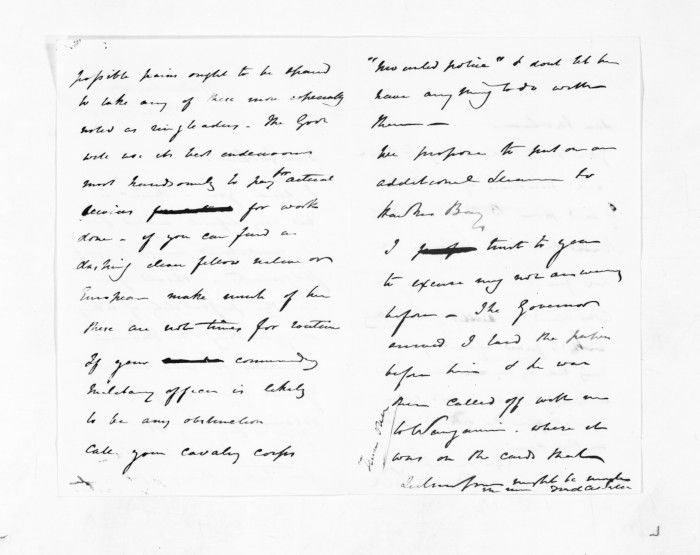 possible pains ought to be spared
to take any of these more especially
noted as ringleaders. The Govt
will use its best endeavours
most handsomely to pay for actual
services for work
done – if you can find a
dashing clever fellow native or
European make much of him
these are not times for routine
If your commanding
Military officer is likely
to be any obstruction
call your cavalry corps
"Mounted police" & dont let him
have anything to do with
them —
We propose to put on an
additional steamer to
Hawkes Bay
I trust to you
to excuse my not answering
before – The Governor
arrived I laid the papers
before him & he was
then called off with me
to Wanganui. where it
was on the cards that
might be